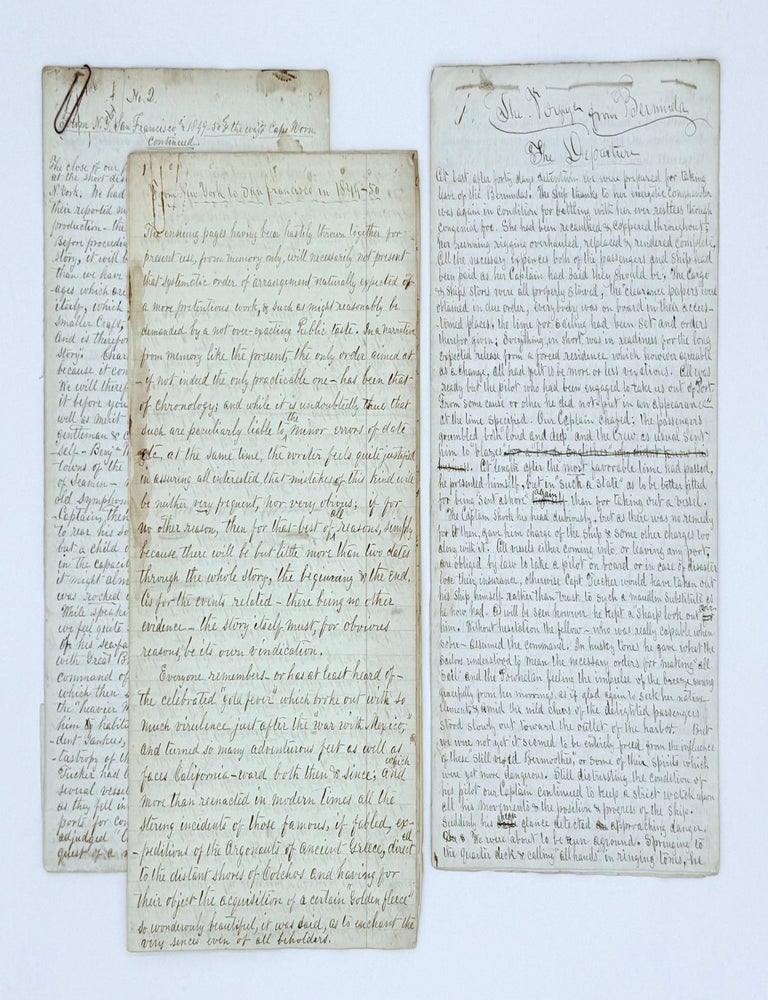 No. 2.
From N.Y. San Francisco 1849-50 the way Cape Horn
Continued
The close of our
at the short dis
N York. We had
their reported
production - the
Before proceeding
story, it will b
than we have
ages which are
itself, which
Smaller Craft,
and is therefor
Story. Char
because it con
We will theref
it before you
well as merit
gentleman &
self - Bery
towns of the
of Seamen -
old Symptom
Captain, then
to rear his so
but a child
in the capacit
it might alm
was rocked
While speak
we feel quite
of his seafa
with Great Br
command of
which then
the "heavier
him & habits
dent Yankees,
tastropy of th
Tucker had
several vessel
as they fell in
ports for co
adjudged "
quest of a
From New York to San Francisco in 1849-50
The ensuing pages having been hastily thrown together for
present use, from memory only, will necessarily not present
that systematic order of arrangement naturally expected of
a more pretentious work, & such as might reasonably be
demanded by a not over-exacting Public taste. In a narrative
from memory like the present, the only order aimed at
- if not indeed the only practicable one - has been that
of Chronology; and while it is undoubtedly true that
such are peculiarly liable to the minor errors of date
&c, at the same time, the writer feels quite justified
in assuring all interested, that mistakes of this kind will
be neither very frequent, nor very obvious; if for
no other reason, then for that best of all reasons, simply
because there will be but little more than two dates
through the whole story, the beginning & the end.
As for the events related - there being no other
evidence - the story itself must, for obvious
reasons, be its own vindication.
Everyone remembers - or has at least heard of -
the celebrated "gold fever" which broke out with so
much virulence just after the "war with Mexico,"
and turned so many adventurous feet as well as
faces California-ward both then & since; and which
more than reenacted in modern times all the
stering incidents of those famous, if fabled, ex-
peditions of the Argonauts of Ancient Greece, all direct
to the distant shores of Colchos and having for
their object the acquisition of a certain "Golden fleece"
so wonderously beautiful, it was said, as to enchant the
very sences even of all beholders.
1. The Voyage from Bermuda
The Departure
At last after forty days detention we were prepared for taking
leave of the Bermudas. The Ship thanks to her energetic Commander
was again in condition for battling with her ever restless though
congenial foe. She had been recaulked & coppered throughout;
her running rigging overhauled, replaced & rendered complete.
All the necessary expences both of the passengers and Ship had
been paid as his Captain had said they should be; The Cargo
& Ships Stores were all properly Stowed, the clearance papers were
obtained in due order, everybody was on board in their accus-
tomed places, the time for Sailing had been set and orders
therefor given; Everything in Short was in readiness for the long
expected release from a forced residence which however agreeable
as a change, all had felt to be more or less vexatious. All was
ready but the pilot who had been engaged to take us out of Port.
From some cause or other he did not put in an appearance
at the time specified. Our Captain chafed: the passengers
grumbled both loud and deep and the Crew as usual Sent
him to blazes
At length after the most favorable time had passed,
he presented himself, but in "such a State" as to be better fitted
for being sent ashore again than for taking out a vessel.
The Captain shook his head dubiously, but as there was no remedy
for it then, gave him charge of the Ship & some other charges too
along with it. All vessels either coming into or leaving any port,
are obliged by law to take a pilot on board or in case of disaster
lose their insurance, otherwise Capt Tucker would have taken out
his Ship himself rather than trust to such a maudlin Substitute as
he now had. As will be seen however he kept a sharp look out over
him. Without hesitation the fellow - who was really capable when
sober - assumed the command. In husky tones he gave what the
Sailors understood to mean the necessary orders for making all
Sail and the Powhatan feeling the impulse of the breeze swung
gracefully from her moorings as if glad again to seek her native
element & amid the wild cheers of the delighted passengers
stood slowly out toward the outlet of the harbor. But
we were not yet it seemed to be entirely freed from the influence
of these Still vexed Bermoothes, or some of their Spirits which
were yet more dangerous. Still distrusting the condition of
his pilot our Captain continued to keep a strict watch upon
all his movements & the position & progress of the Ship.
Suddenly his glance detected approaching danger.
We were about to be run aground. Springing to
the quarter deck & calling "all hands" in ringing tones, he